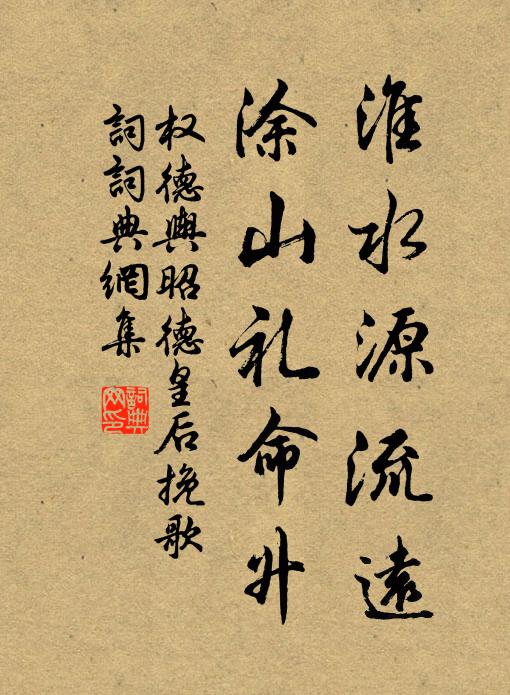 淮水源流遠
涂山礼命升
权德興昭德皇后挽歌
詞詞典網集
詞典網印